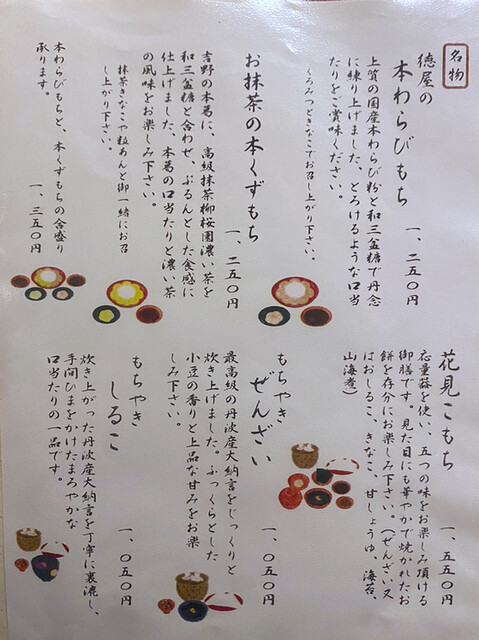 名物
徳屋の
本わらびもち
一、二五〇円
上質の国産本わらび粉と和三盆糖で丹念
に練り上げました、とろけるような口当
たりをご賞味ください。
くろみつときなこでお召し上がり下さい。
お抹茶の本くずもち
一、二五〇円
吉野の本葛に、高級抹茶柳桜園濃い茶を
和三盆糖と合わせ、ぷるんとした食感に
仕上げました、本葛の口当たりと濃い茶
の風味をお楽しみ下さい。
抹茶きなこや粒あんと御一緒にお召
し上がり下さい。
本わらびもちと、本くずもちの合盛り
承ります。
一、三五〇円
花見こもち
一、五五〇円
応量器を使い、五つの味をお楽しみ頂ける
御膳です。見た目にも華やかで焼かれたお
餅を存分にお楽しみ下さい。(ぜんざい又
はおしるこ、きなこ、甘しょうゆ、海苔、
山海煮)
もちやき
ぜんざい
一、〇五〇円
最高級の丹波産大納言をじっくりと
炊き上げました。ふっくらとした
小豆の香りと上品な甘みをお楽
しみ下さい。
もちやき
しるこ
一、〇五〇円
炊き上がった丹波産大納言を丁寧に裏漉し、
手間ひまをかけたまろやかな
口当たりの一品です。